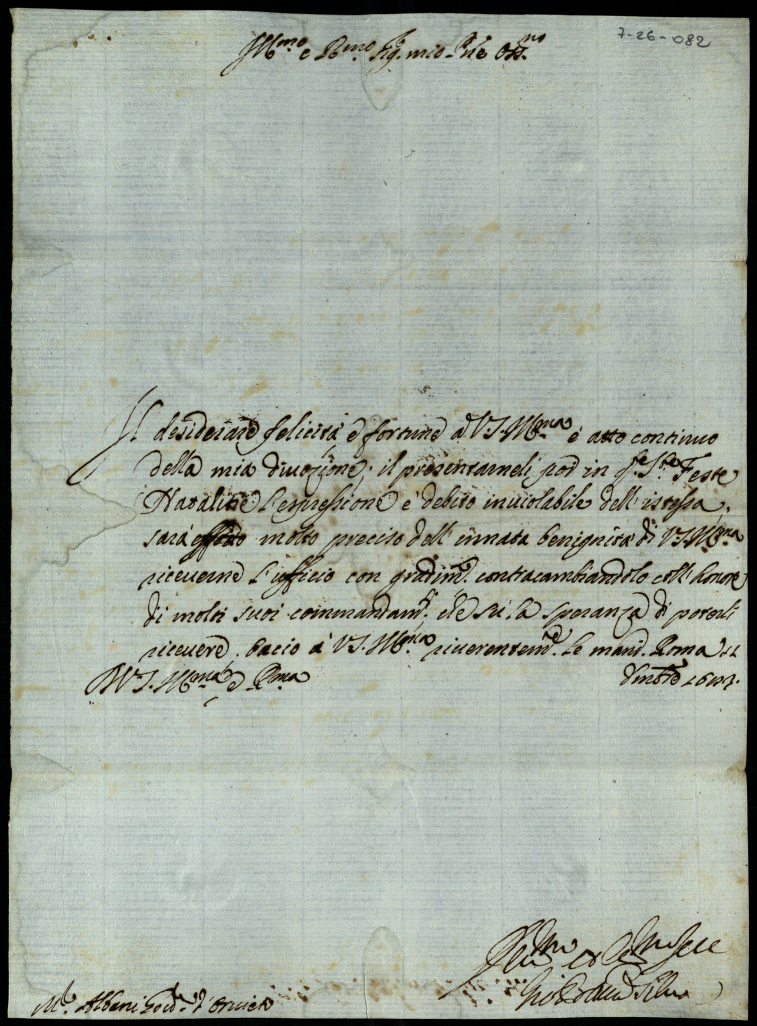 7-26-082
Ill.mo e R.mo Sig. mio P.ne Oss.mo
Il desiderare felicità e fortune a V.S. Ill.ma è atto continuo
della mia divozione; il presentarneli poi in q.te S.te Feste
Natalitie l'espressione è debito inviolabile dell'istessa,
sarà effetto molto preciso dell'innata benignità di V.S. Ill.ma
riceverne l'ufficio con gradim.to contracambiandolo coll'honore
di molti suoi commandam.ti, che sù la speranza di poterli
ricevere, bacio à V.S. Ill.ma riverentem.te le mani. Roma
Di V.S. Ill.ma e R.ma
M.r Albani Gov.re d'Orvieto